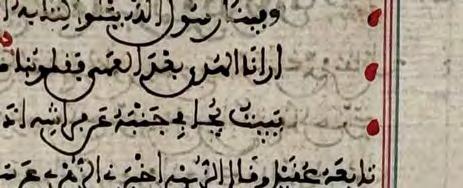 وفينا رسول الله يتلوا كتابه
ارانا الهدى بعد العمى فقلوبنا
يبيت يجافي جنبه عن فراشه اذا
تابعه عقيل وقال الزبيدي اخبرني الزهري عن